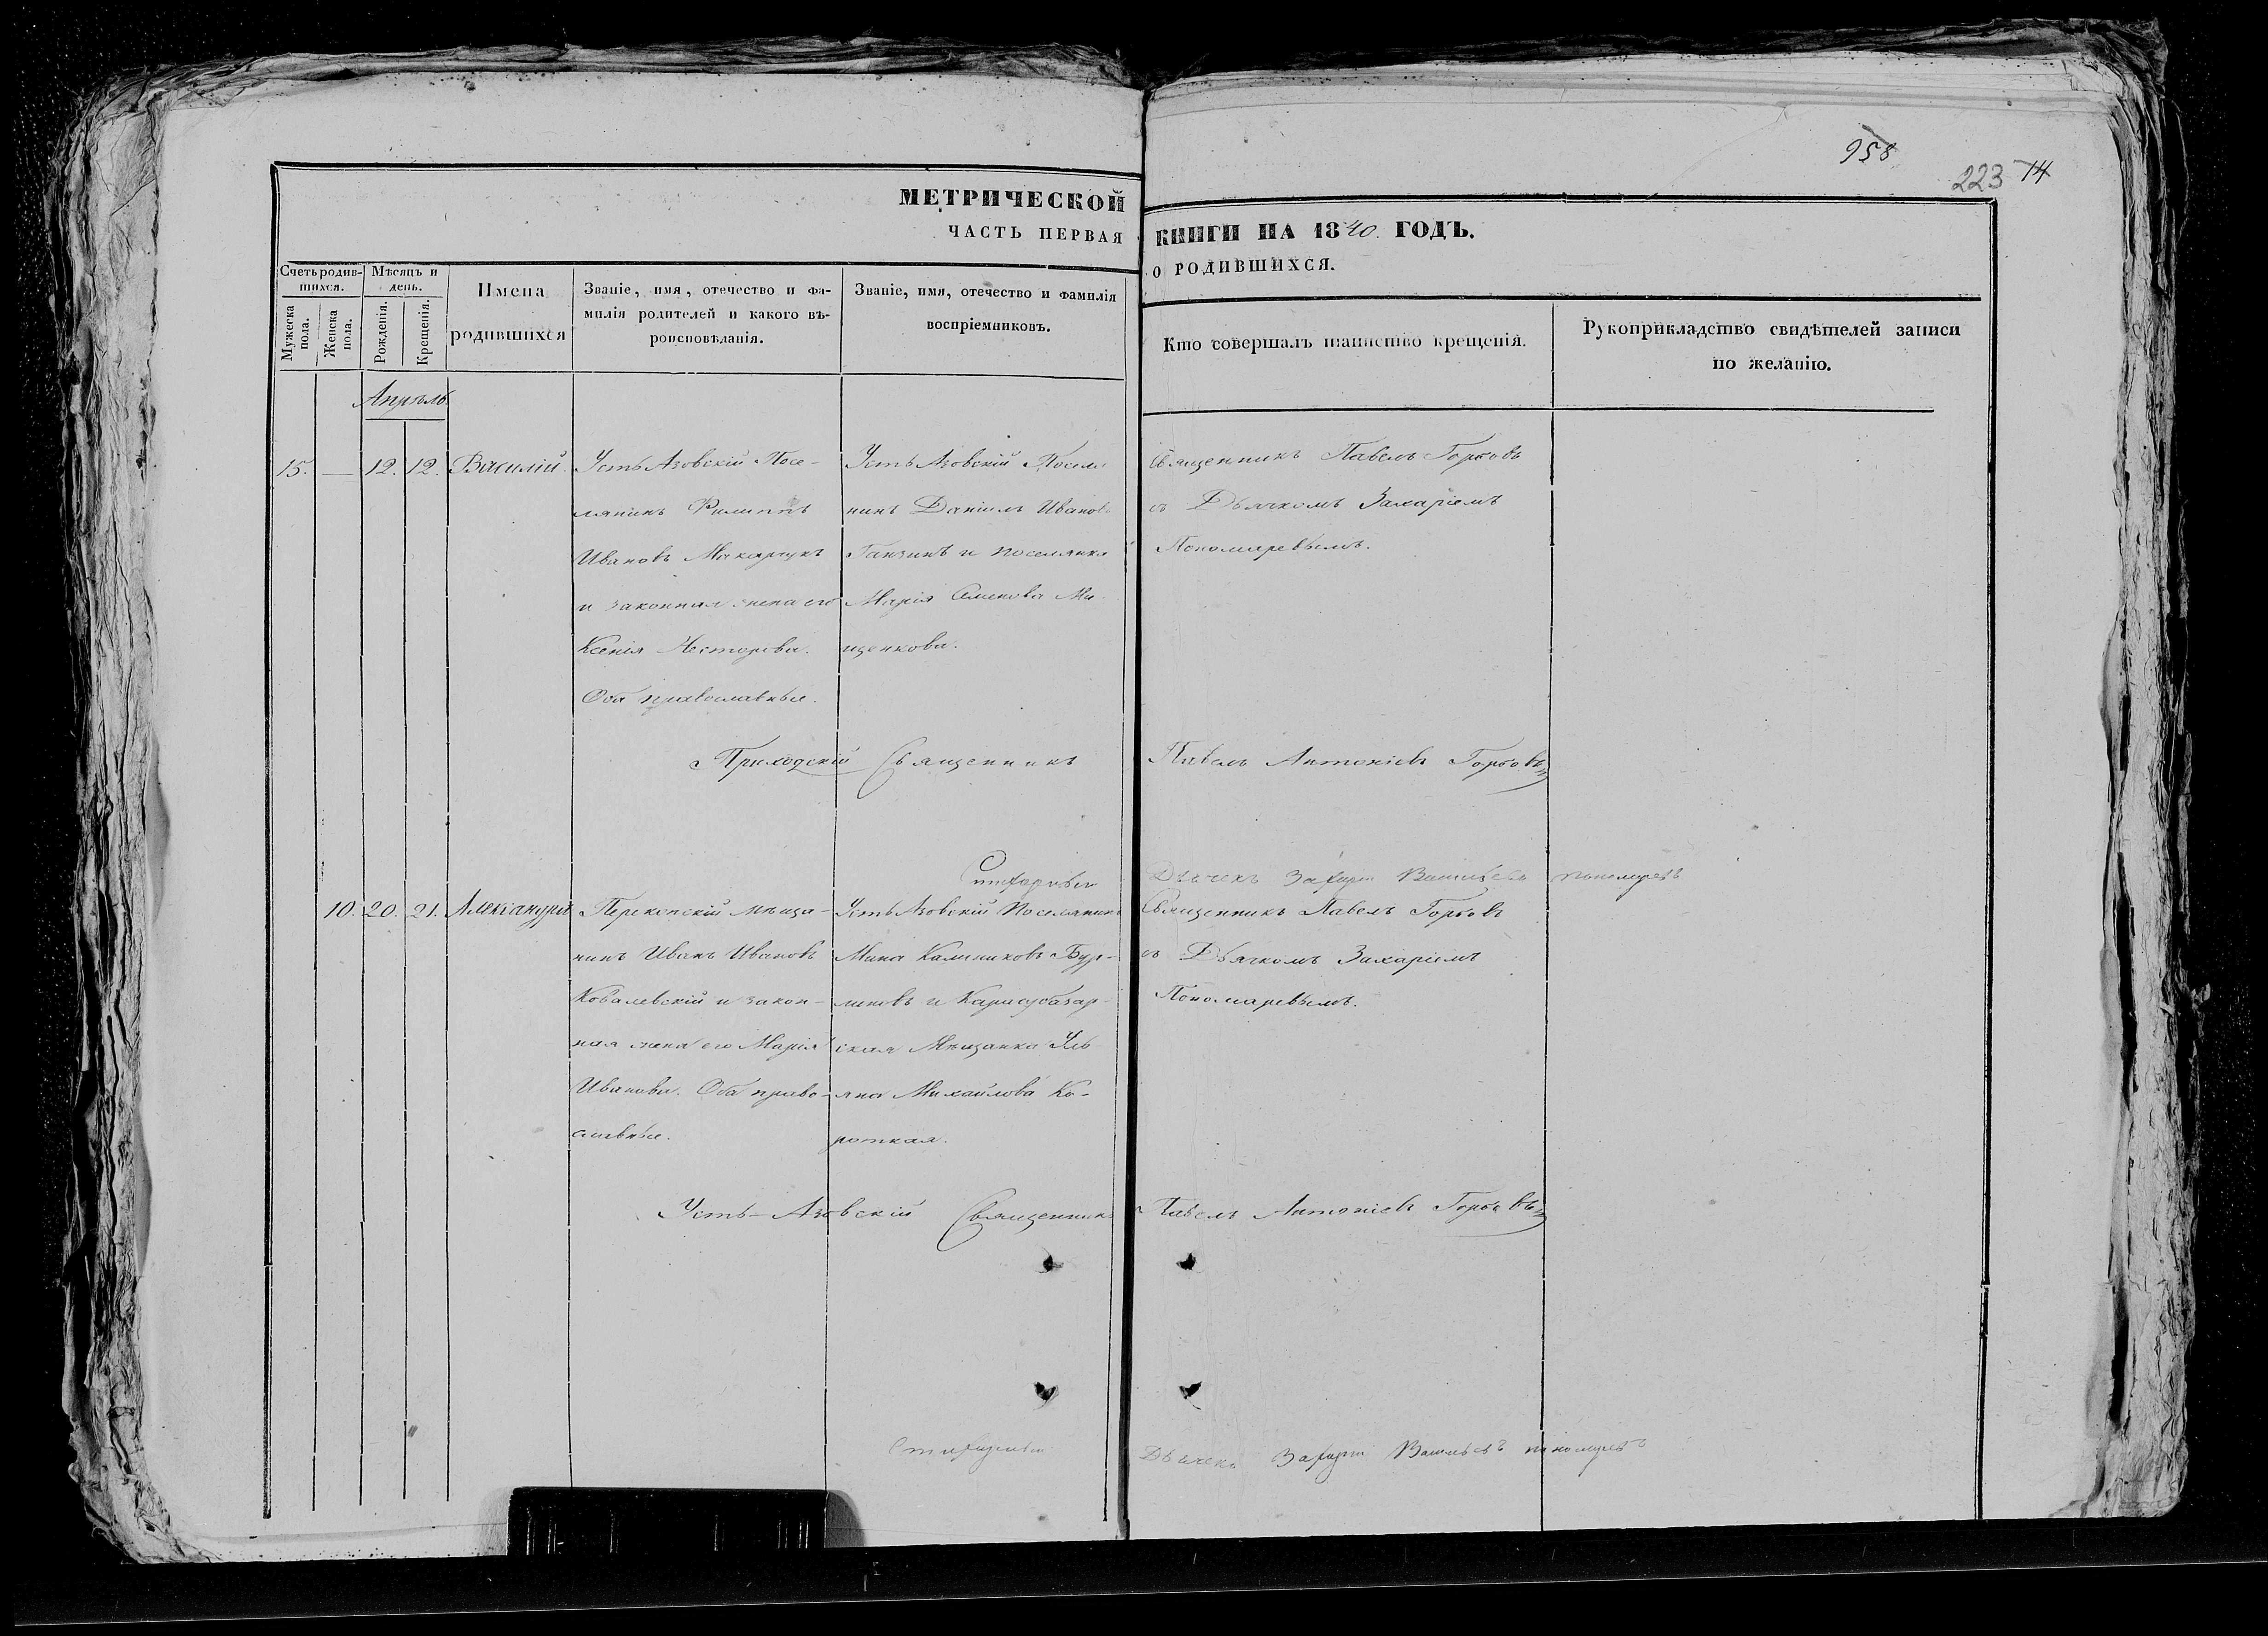 958
223 14
МЕТРИЧЕСКОЙ КНИГИ НА 1840. ГОДЪ.
ЧАСТЬ ПЕРВАЯ О РОДИВШИХСЯ.
Счетъ родившихся.
Мужеска пола.
Женска пола.
Мѣсяцъ и день.
Рожденія.
Крещенія.
Имена родившихся
Званіе, имя, отечество и фамилія родителей и какого вѣроисповѣданія.
Званіе, имя, отечество и фамилія воспріемниковъ.
Кто совершалъ таинство крещенія.
Рукоприкладство свидѣтелей записи по желанію.
Апрѣль
15. — 12. 12. Василій.
Усть Азовскій Посе-
лянинъ Филиппъ
Ивановъ Макарчукъ
и законная жена его
Ксенія Несторова.
Оба православные.
Усть Азовскій Поселя
нинъ Даніилъ Ивановъ
Ганжинъ и поселянка
Марія Семенова Ми
щенкова.
Священникъ Павелъ Горбовъ
съ Дьячкомъ Захаріемъ
Пономаревымъ.
Приходскій Священникъ Павелъ Антоніевъ Горбовъ
Дьячекъ Захарій Васильевъ пономаревъ
10. 20. 21. Александра
Перекопскій мѣща-
нинъ Иванъ Ивановъ
Ковалевскій и закон-
ная жена его Марія
Иванова. Оба право-
славные.
Усть Азовскій Поселянинъ
Мина Калиниковъ Бур-
лаковъ и Карасубазар-
ская Мѣщанка Улья
яна Михайлова Ко-
роткая.
Священникъ Павелъ Горбовъ
съ Дьячкомъ Захаріемъ
Пономаревымъ.
Усть-Азовскій Священникъ Павелъ Антоніевъ Горбовъ
Дьячекъ Захарій Васильевъ пономаревъ